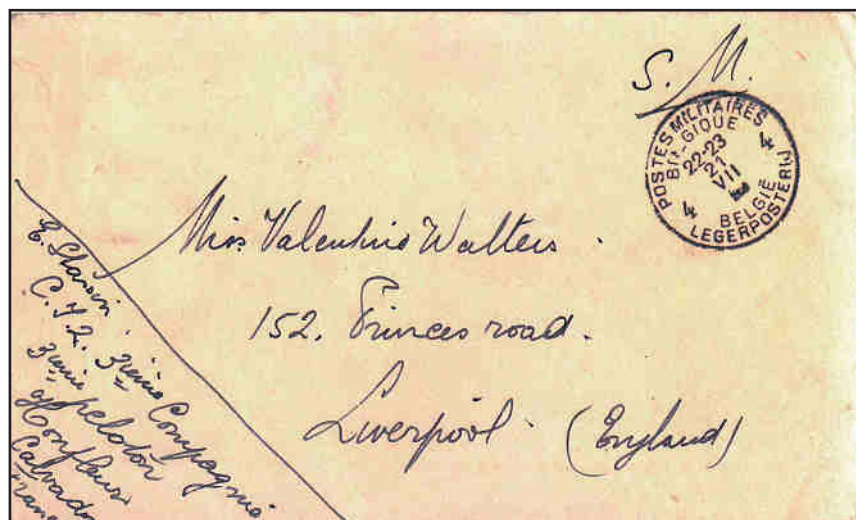 S. M.
POSTES MILITAIRES
BELGIQUE
4
22-23
21
VII
4
BELGIË
LEGERPOSTERIJ
Miss Valentine Walters.
152. Princes road.
Liverpool. (England)
C.
3ième Compagnie
3ième peloton
Honfleur
Calvad
Fran